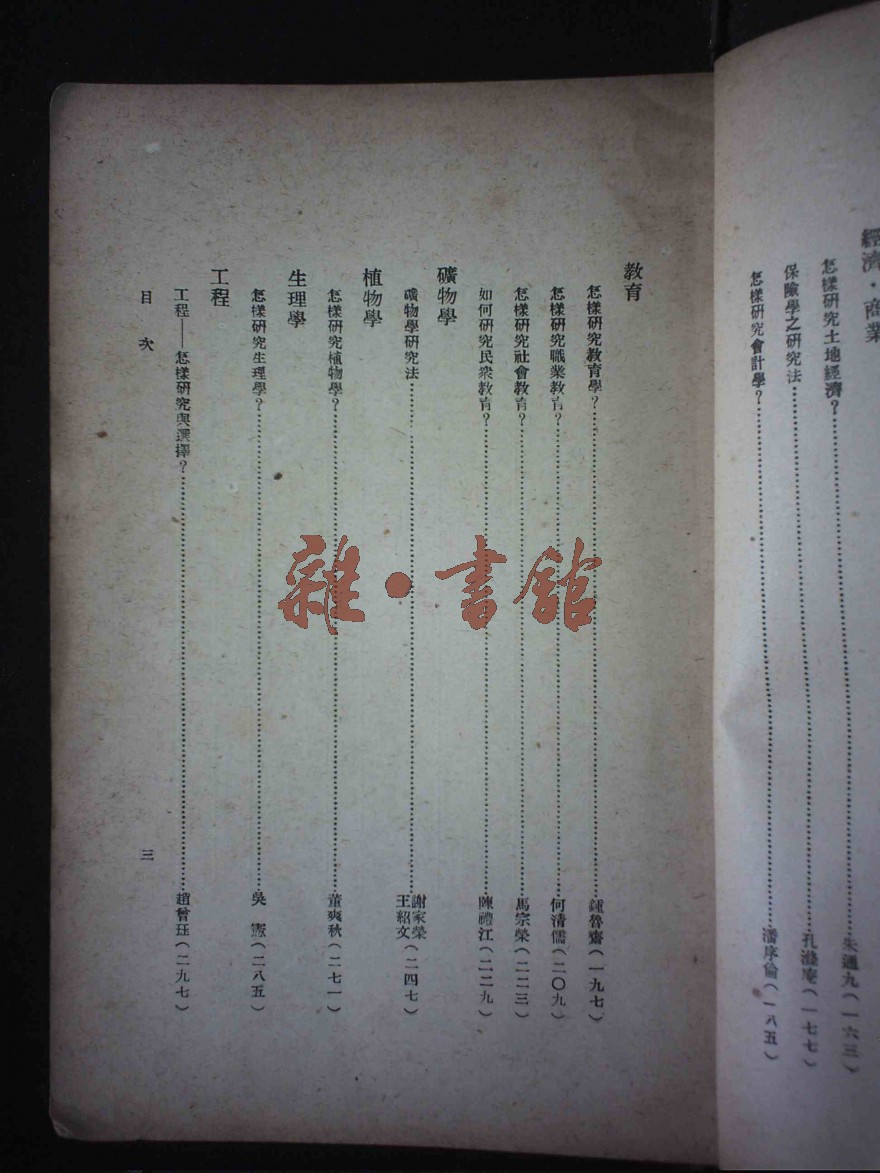 經濟・商業
怎樣研究土地經濟?……朱通九(一六三)
保險學之研究法……孔滌庵(一七七)
怎樣研究會計學?……潘序倫(一八五)
教育
怎樣研究教育學?……鍾魯齋(一九七)
怎樣研究職業教育?……何清儒(二〇九)
怎樣研究社會教育?……馬宗榮(二二三)
如何研究民衆教育?……陳禮江(二二九)
礦物學
礦物學研究法……謝家榮 王紹文(二四七)
植物學
怎樣研究植物學?……董爽秋(二七一)
生理學
怎樣研究生理學?……吳憲(二八五)
工程
工程——怎樣研究與選擇?……趙曾珏(二九七)
目次
三
雜・書館